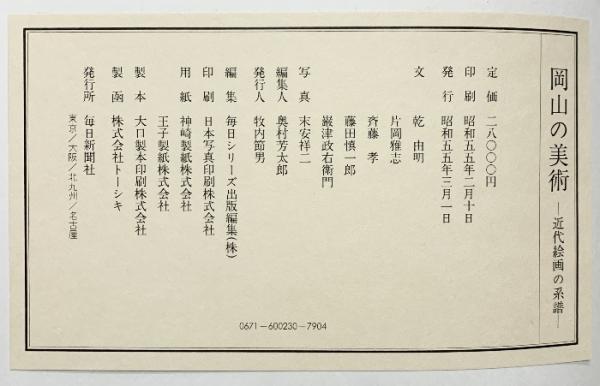 岡山の美術 ―近代絵画の系譜―
定価 二八〇〇〇円
印刷 昭和五五年二月十日
発行 昭和五五年三月一日
文 乾由明
片岡雅志
斉藤孝
藤田慎一郎
巌津政右衛門
写真 末安祥二
編集人 奥村芳太郎
発行人 牧内節男
編集 毎日シリーズ出版編集(株)
印刷 日本写真印刷株式会社
用紙 神崎製紙株式会社
王子製紙株式会社
製本 大口製本印刷株式会社
製函 株式会社トーシキ
発行所 毎日新聞社
東京/大阪/北九州/名古屋
0671-600230-7904